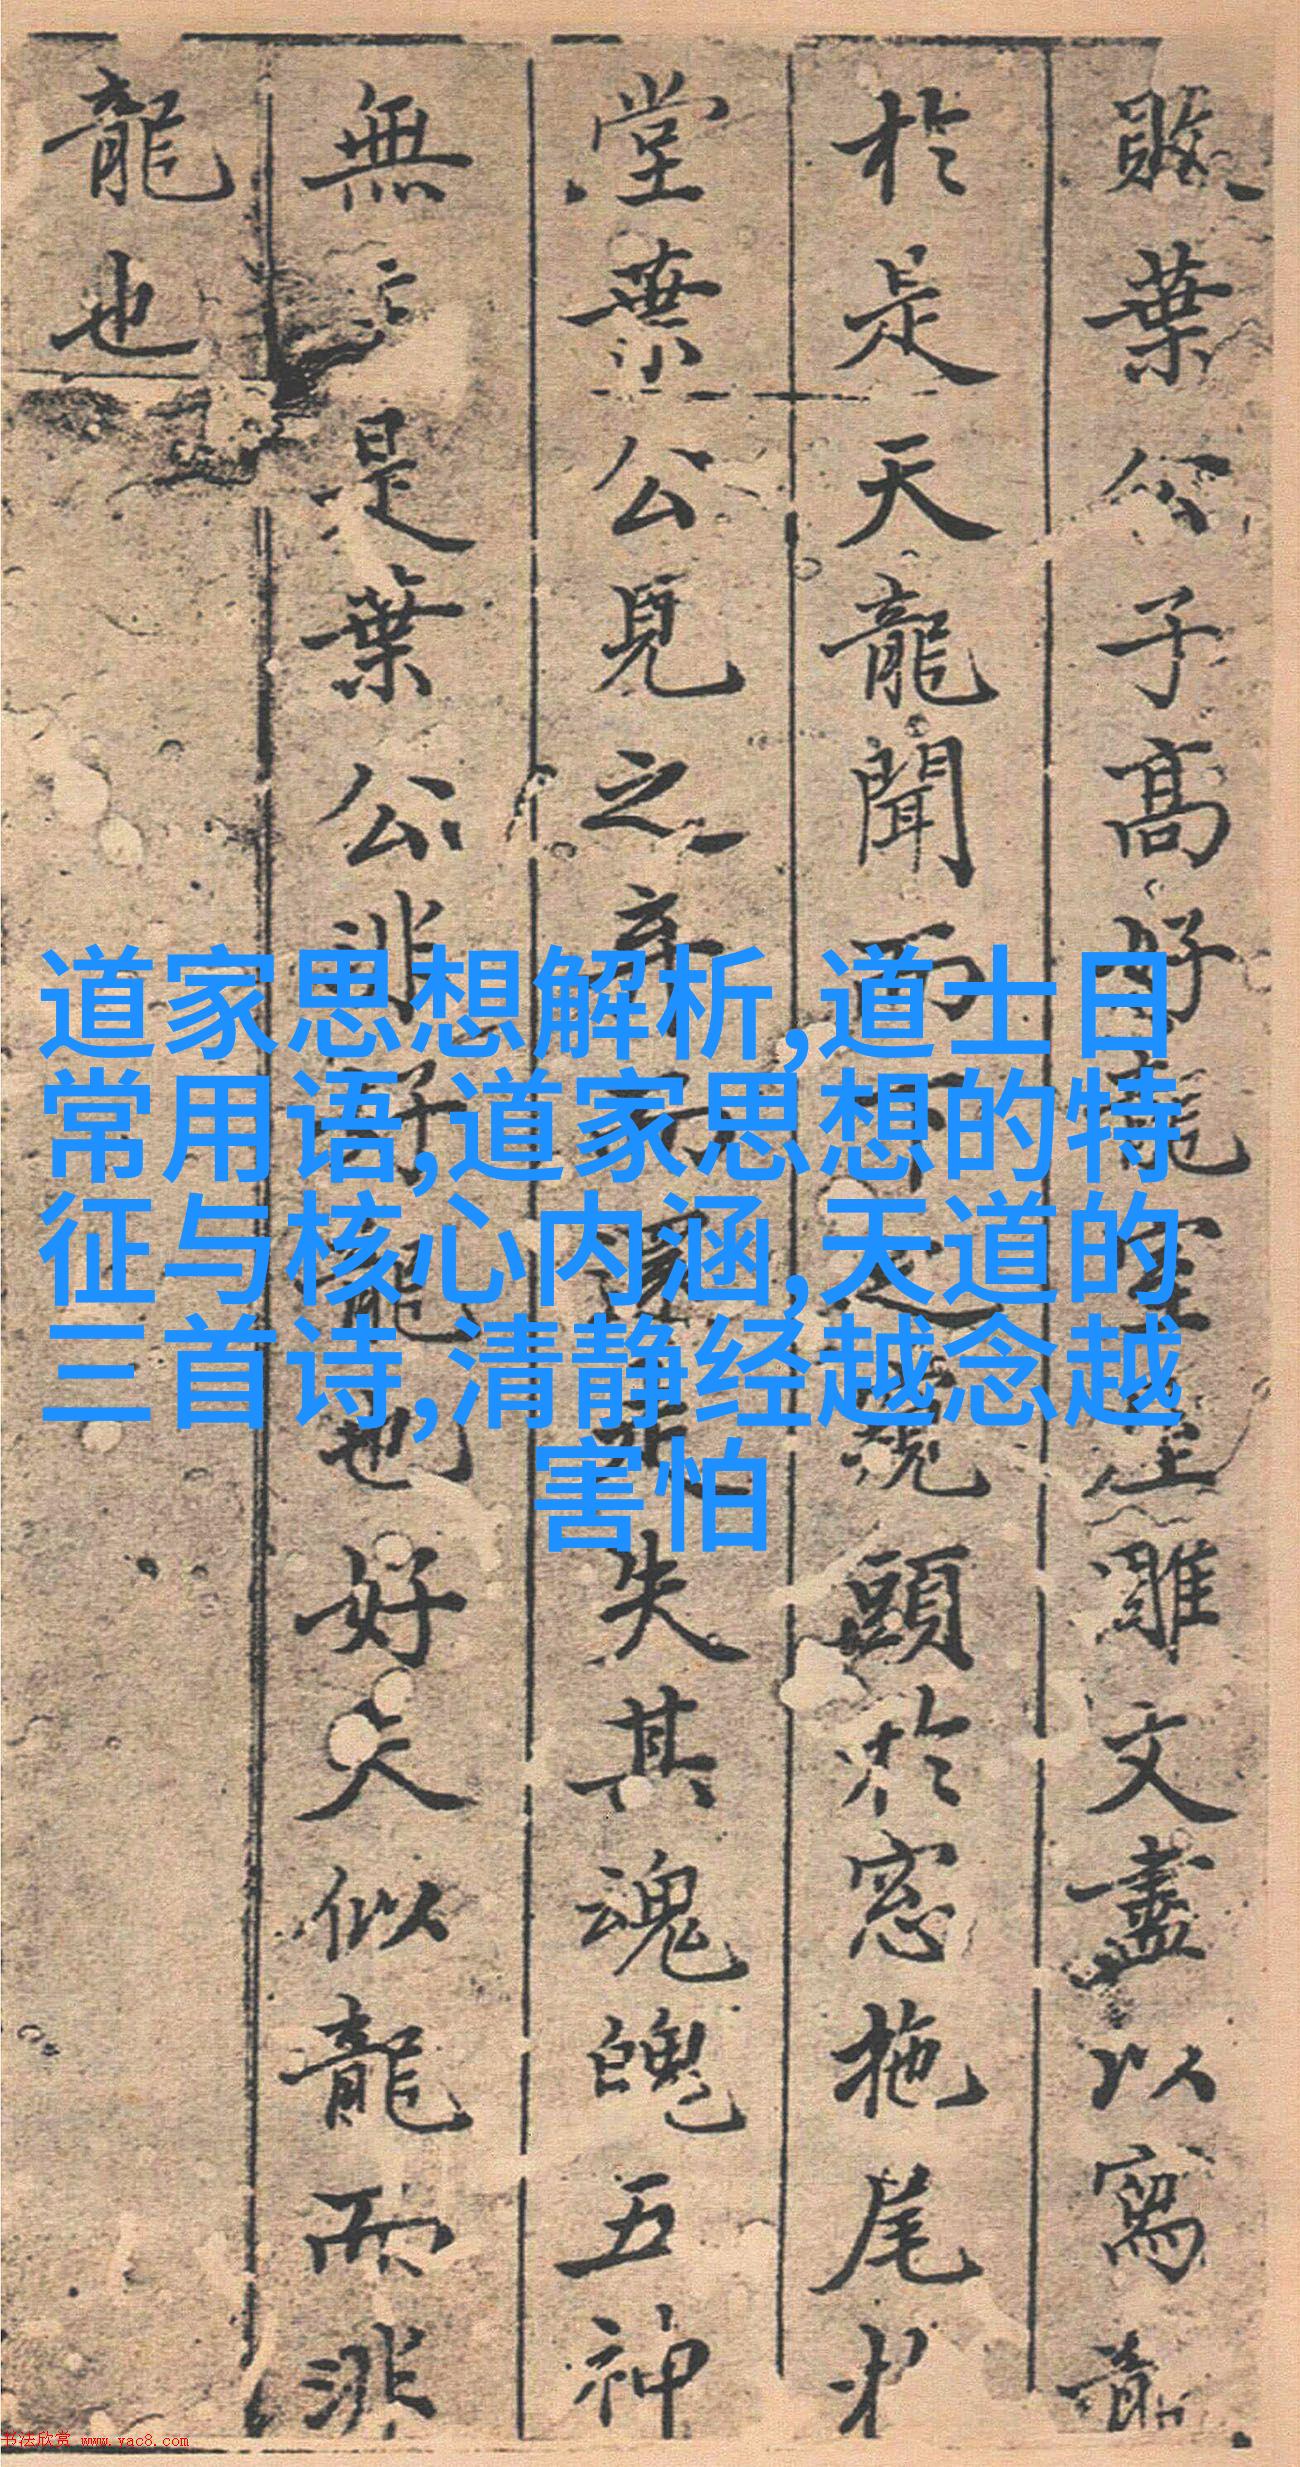 敗葉公子高好龍室屋雕文盡以寫龍
於是天龍聞而下之窺頭於窓拖尾於
堂葉公見之弃而還走失其魂魄五神
無主是葉公非好龍也好夫似龍而非
龍也
道家思想解析,道士日
常用语,道家思想的特
征与核心内涵,天道的
三首诗,清静经越念越
害怕
书法欣赏 www.yac8.com